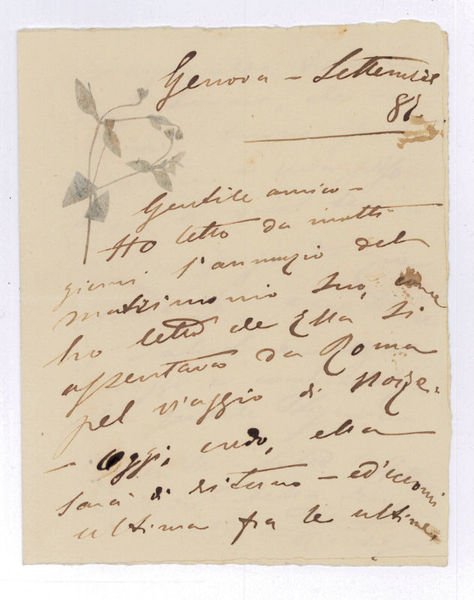 Genova - Settembre
Gentile amico -
Ho letto da molti
giorni l'annuzio del
matrimonio Suo, come
ho letto che Ella si
assentava da Roma
pel viaggio di Nozze.
- Oggi, credo, ella
sarà di ritorno - ed eccomi
ultima fra le ultime,